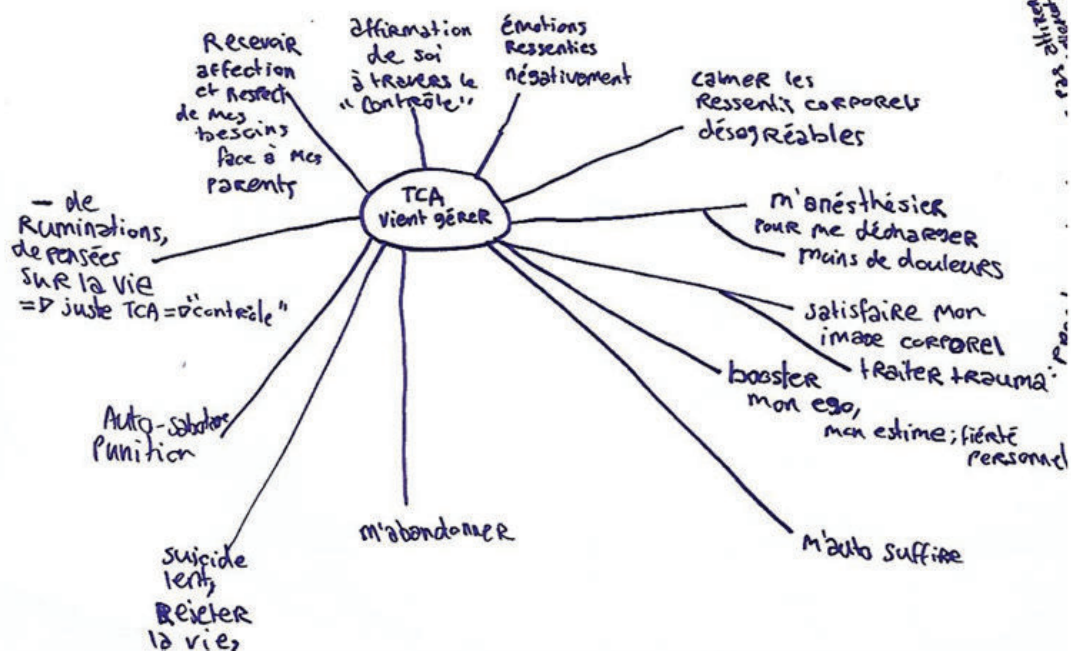 Recevoir
affection
et respect
de mes
besoins
face à mes
parents
affirmation
de soi
à travers le
"contrôle"
émotions
ressenties
négativement
calmer les
ressentis corporels
désagréables
TCA
vient gérer
m'anésthésier
pour me décharger
moins de douleurs
satisfaire mon
image corporel
traiter trauma :
booster
mon ego,
mon estime ; fiérté
personnel
m'auto suffire
m'abandonner
suicide
lent,
rejeter
la vie,
Auto-sabotage
Punition
- de
Ruminations,
de pensées
sur la vie
=> juste TCA => "contrôle"
pas attirer